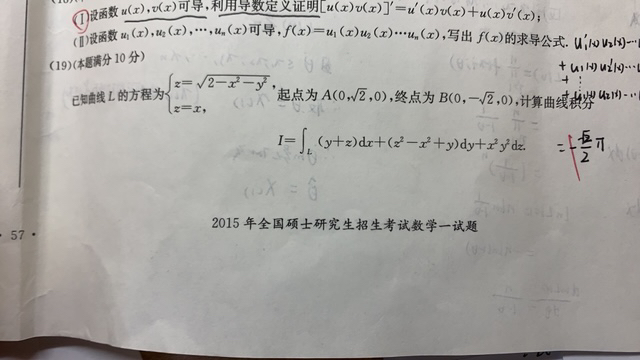 (Ⅰ)设函数 u(x),v(x)可导,利用导数定义证明[u(x)v(x)]′=u′(x)v(x)+u(x)v′(x);
(Ⅱ)设函数 u₁(x),u₂(x),…,uₙ(x)可导,f(x)=u₁(x)u₂(x)…uₙ(x),写出 f(x)的求导公式. u₁'(x) u₂(x)…
+ u₁(x) u₂'(x)…
(19)(本题满分 10 分)
+
已知曲线 L 的方程为{z=√(2-x²-y²), z=x, 起点为 A(0,√2,0),终点为 B(0,-√2,0),计算曲线积分
I=∫_L (y+z)dx+(z²-x²+y)dy+x²y²dz. = -√2/2 π
2015 年全国硕士研究生招生考试数学一试题
· 57 ·